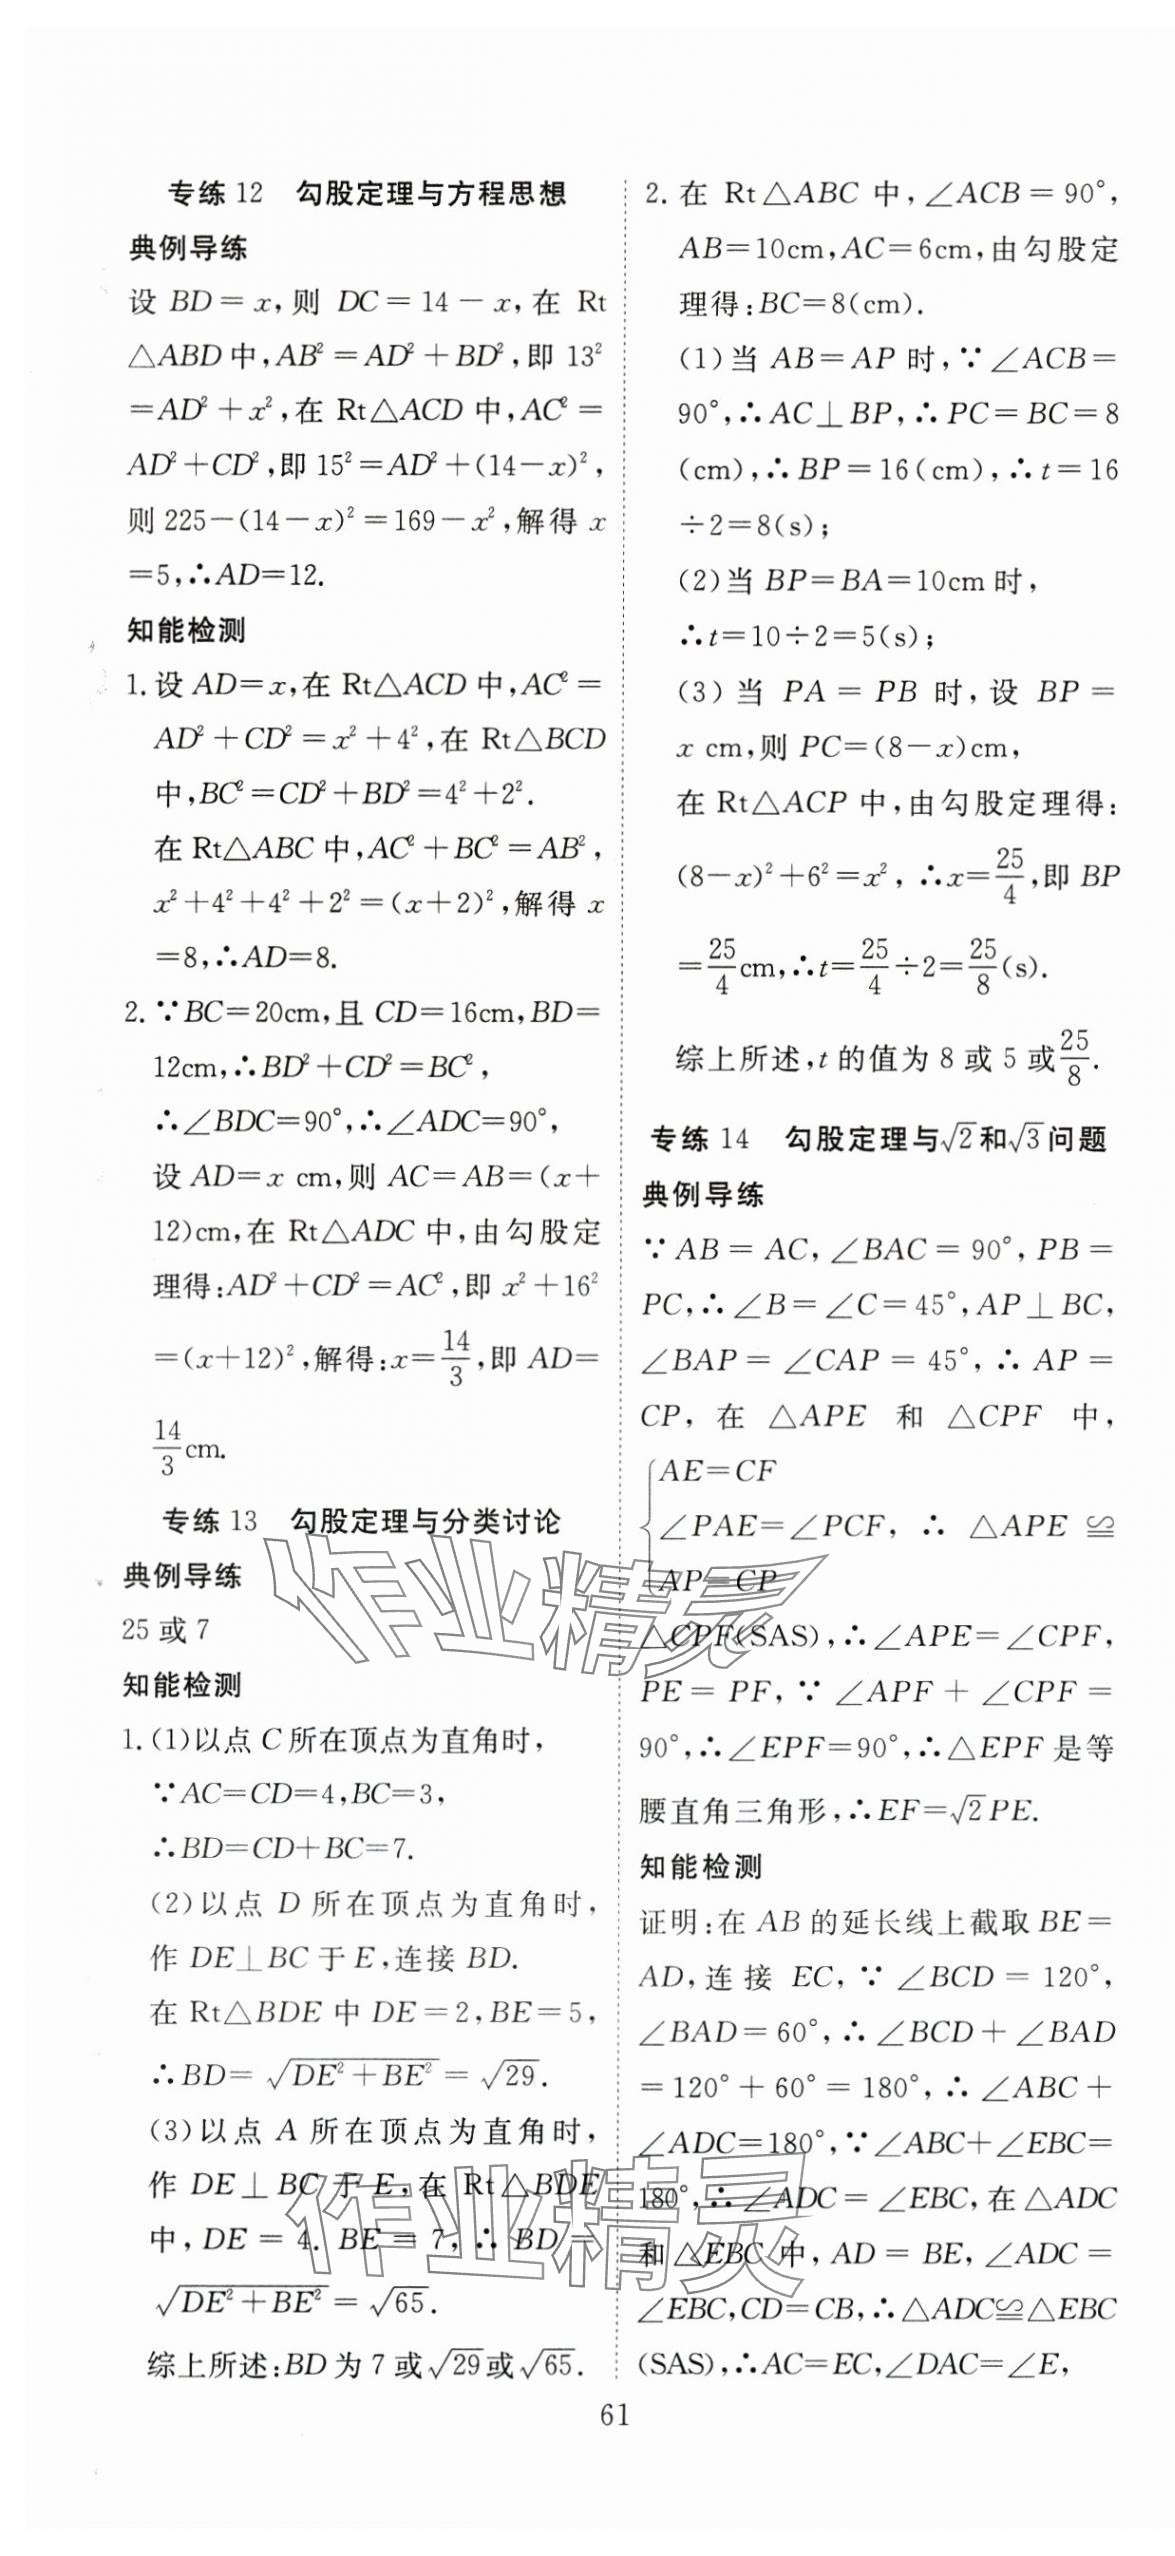 专练 12 勾股定理与方程思想
典例导练
设 BD=x,则 DC=14-x,在 Rt
△ABD 中,AB²=AD²+BD²,即 13²
=AD²+x²,在 Rt△ACD 中,AC²=
AD²+CD²,即 15²=AD²+(14-x)²,
则 225-(14-x)²=169-x²,解得 x
=5,∴AD=12.
知能检测
1. 设 AD=x,在 Rt△ACD 中,AC²=
AD²+CD²=x²+4²,在 Rt△BCD
中,BC²=CD²+BD²=4²+2².
在 Rt△ABC 中,AC²+BC²=AB²,
x²+4²+4²+2²=(x+2)²,解得 x
=8,∴AD=8.
2. ∵BC=20cm,且 CD=16cm,BD=
12cm,∴BD²+CD²=BC²,
∴∠BDC=90°,∴∠ADC=90°,
设 AD=x cm,则 AC=AB=(x+
12)cm,在 Rt△ADC 中,由勾股定
理得:AD²+CD²=AC²,即 x²+16²
=(x+12)²,解得:x=14/3,即 AD=
14/3cm.
专练 13 勾股定理与分类讨论
典例导练
25 或 7
知能检测
1. (1)以点 C 所在顶点为直角时,
∵AC=CD=4,BC=3,
∴BD=CD+BC=7.
(2)以点 D 所在顶点为直角时,
作 DE⊥BC 于 E,连接 BD.
在 Rt△BDE 中 DE=2,BE=5,
∴BD=√(DE²+BE²)=√29.
(3)以点 A 所在顶点为直角时,
作 DE⊥BC 于 E,在 Rt△BDE
中,DE=4. BE=7,∴BD=
√(DE²+BE²)=√65.
综上所述:BD 为 7 或√29或√65.
2. 在 Rt△ABC 中,∠ACB=90°,
AB=10cm,AC=6cm,由勾股定
理得:BC=8(cm).
(1)当 AB=AP 时,∵∠ACB=
90°,∴AC⊥BP,∴PC=BC=8
(cm),∴BP=16(cm),∴t=16
÷2=8(s);
(2)当 BP=BA=10cm 时,
∴t=10÷2=5(s);
(3)当 PA=PB 时,设 BP=
x cm,则 PC=(8-x)cm,
在 Rt△ACP 中,由勾股定理得:
(8-x)²+6²=x²,∴x=25/4,即 BP
=25/4cm,∴t=25/4÷2=25/8(s).
综上所述,t 的值为 8 或 5 或25/8.
专练 14 勾股定理与√2和√3问题
典例导练
∵AB=AC,∠BAC=90°,PB=
PC,∴∠B=∠C=45°,AP⊥BC,
∠BAP=∠CAP=45°,∴AP=
CP,在 △APE 和 △CPF 中,
{AE=CF
∠PAE=∠PCF,∴△APE≌
AP=CP
△CPF(SAS),∴∠APE=∠CPF,
PE=PF,∵∠APF+∠CPF=
90°,∴∠EPF=90°,∴△EPF 是等
腰直角三角形,∴EF=√2PE.
知能检测
证明:在 AB 的延长线上截取 BE=
AD,连接 EC,∵∠BCD=120°,
∠BAD=60°,∴∠BCD+∠BAD
=120°+60°=180°,∴∠ABC+
∠ADC=180°,∵∠ABC+∠EBC=
180°,∴∠ADC=∠EBC,在△ADC
和△EBC 中,AD=BE,∠ADC=
∠EBC,CD=CB,∴△ADC≌△EBC
(SAS),∴AC=EC,∠DAC=∠E,
61
作业精灵
作业精灵